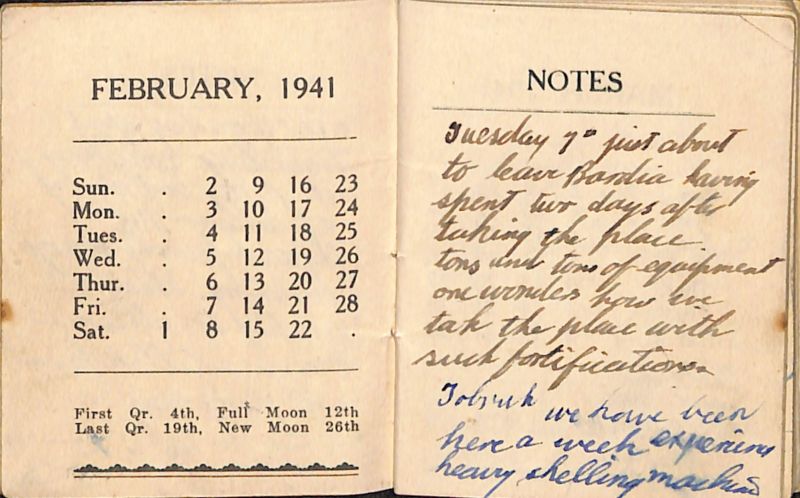 FEBRUARY, 1941
Sun. . 2 9 16 23
Mon. . 3 10 17 24
Tues. . 4 11 18 25
Wed. . 5 12 19 26
Thur. . 6 13 20 27
Fri. . 7 14 21 28
Sat. 1 8 15 22 .
First Qr. 4th, Full Moon 12th
Last Qr. 19th, New Moon 26th
NOTES
Tuesday 7th just about
to leave Bardia having
spent two days after
taking the place
tons and tons of equipment
one wonders how we
tak the place with
such fortifications
Tobruk we have been
here a week
heavy shelling machine